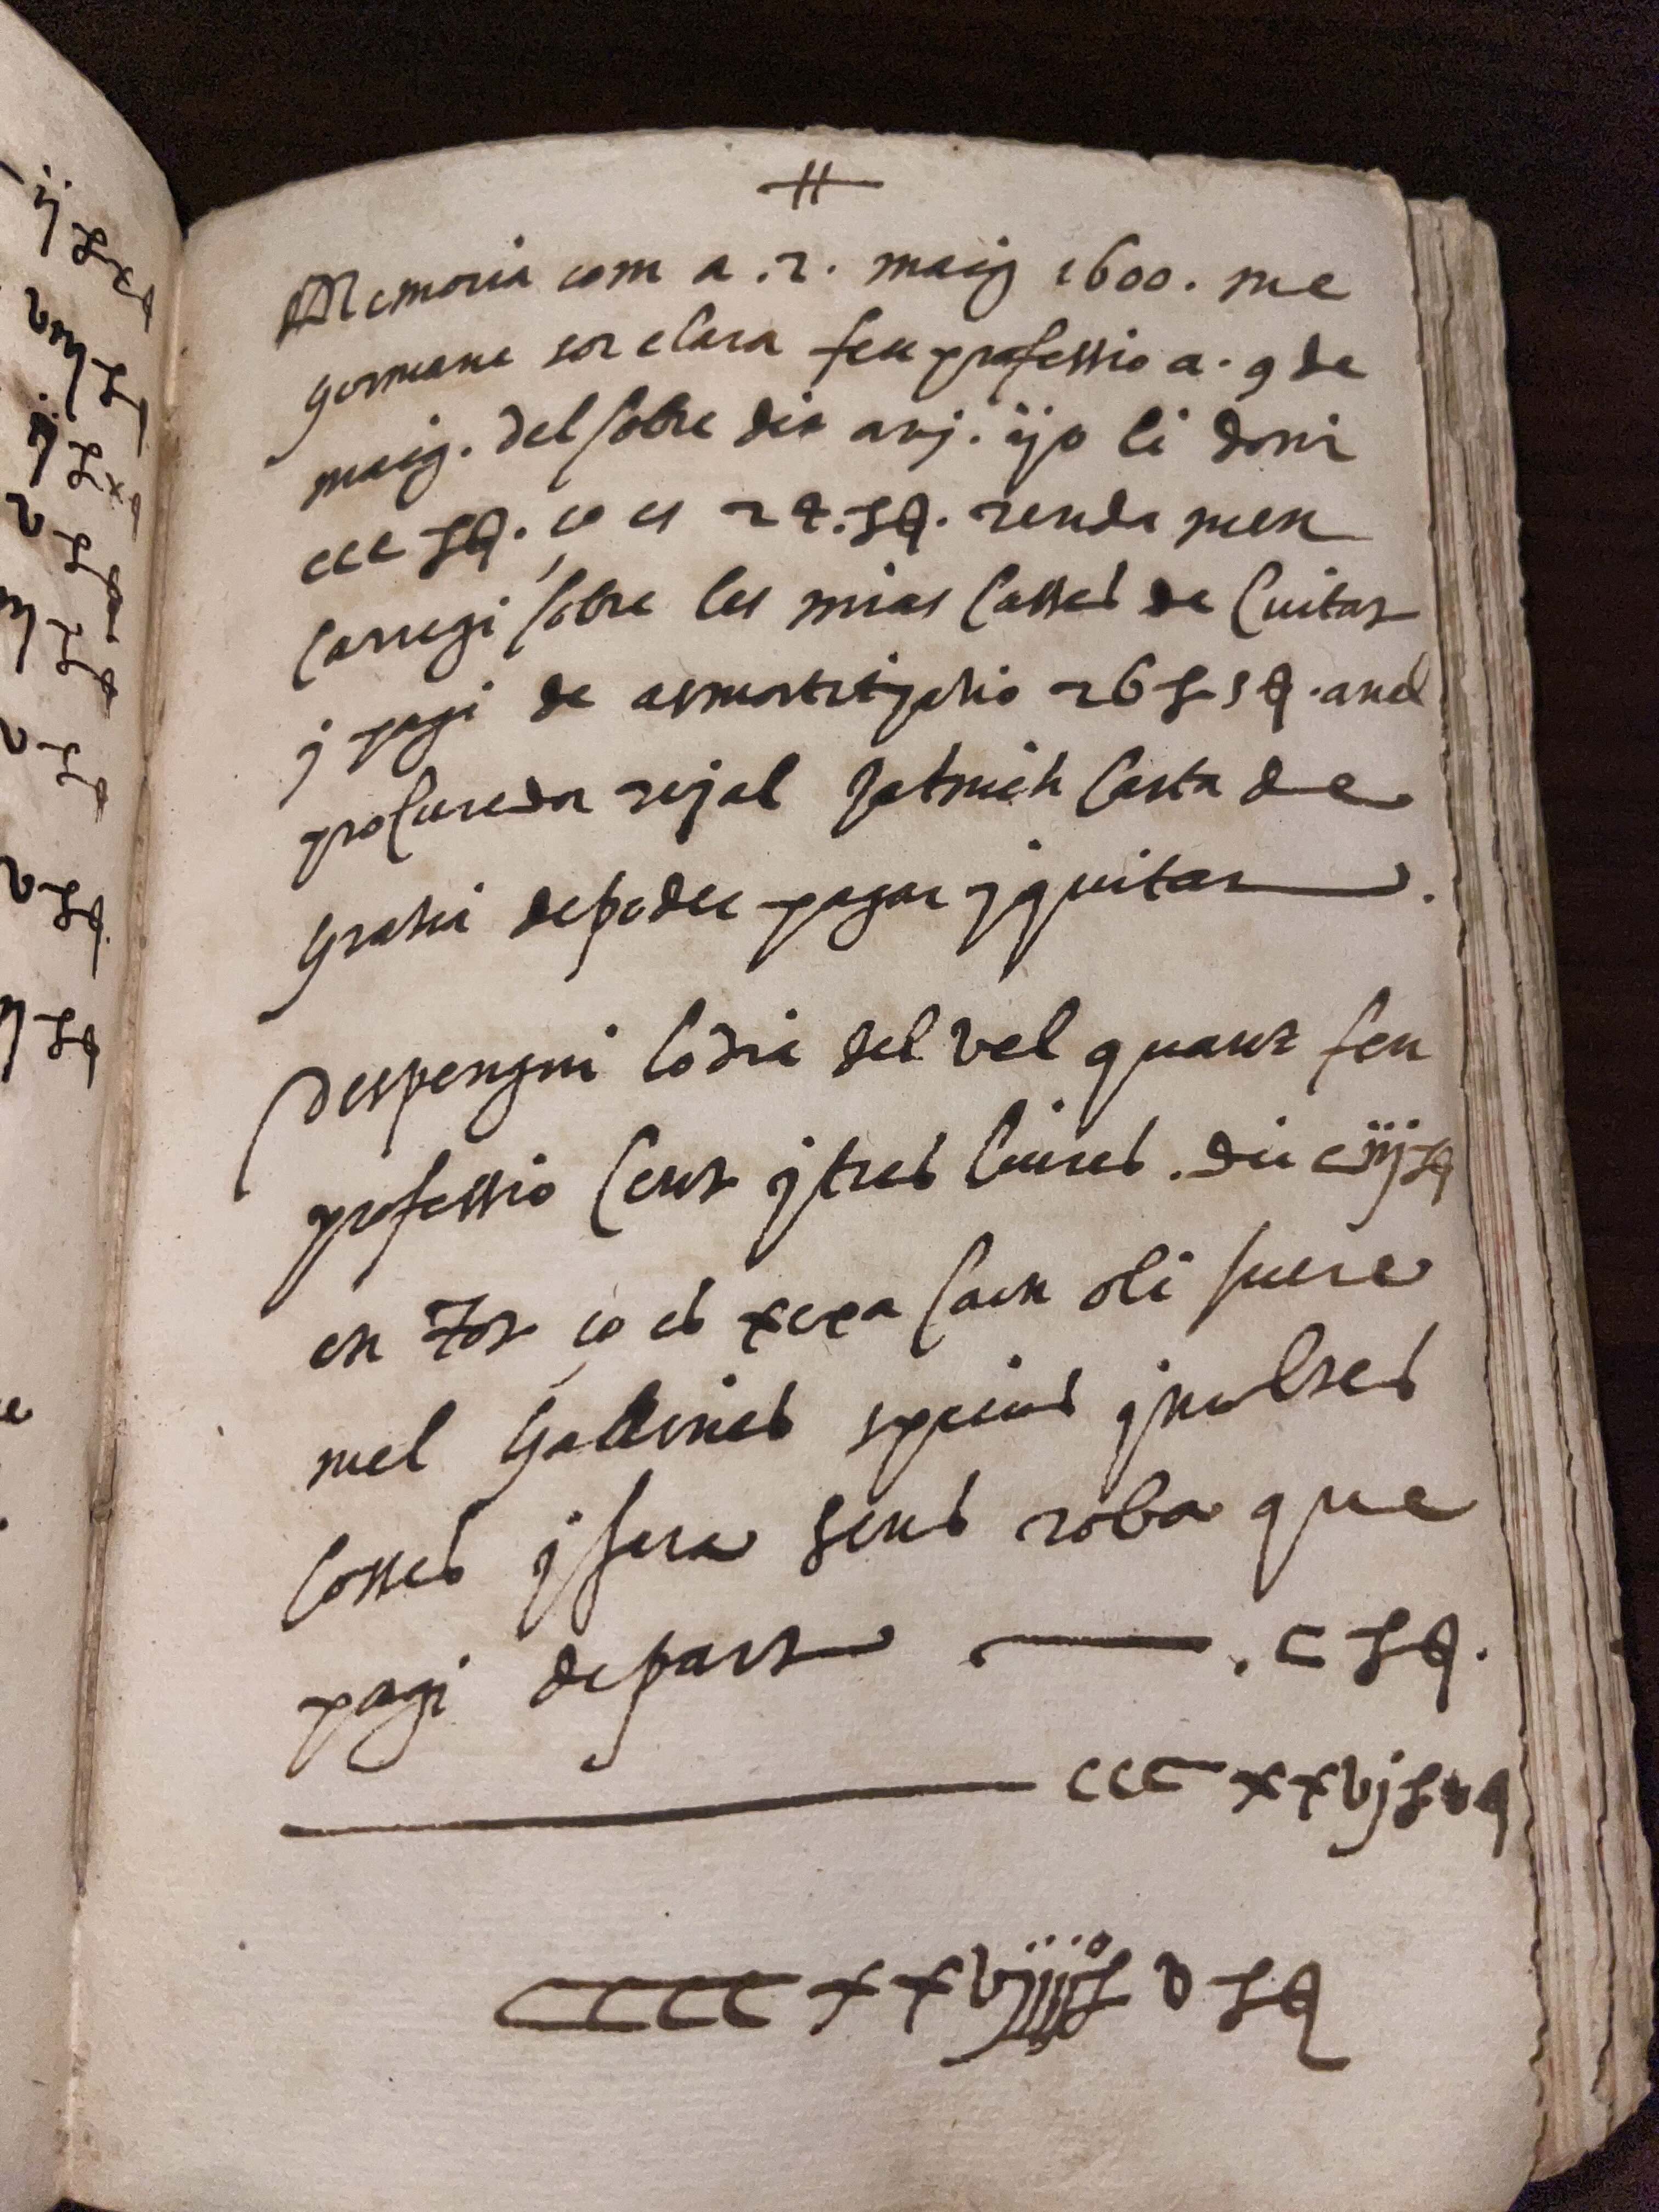 Memoria com a .2. maig 1600. me
germane sor clara feu professio a . 9 de
maig . del sobre dit anj . ijo li doni
ccc ℔ . ço es 24 . ℔ . renda men
carregi sobre les mias casses de Ciutat
j pagi de armortitzasio 26 ℔ 5 ß . an el
procurador rejal ja tnich carta de
gratia de poder pagar j quitar .
Despengui lo dia del vel quant feu
professio cent j tres liures . dic ciij ℔
en tot ço es xexa carn oli sucre
mel gallines spesias j moltes
cosses j sera sens roba que
pagi de part . c ℔ .
ccc xxvj ℔ v ß
cccc xxviiij ℔ v ß